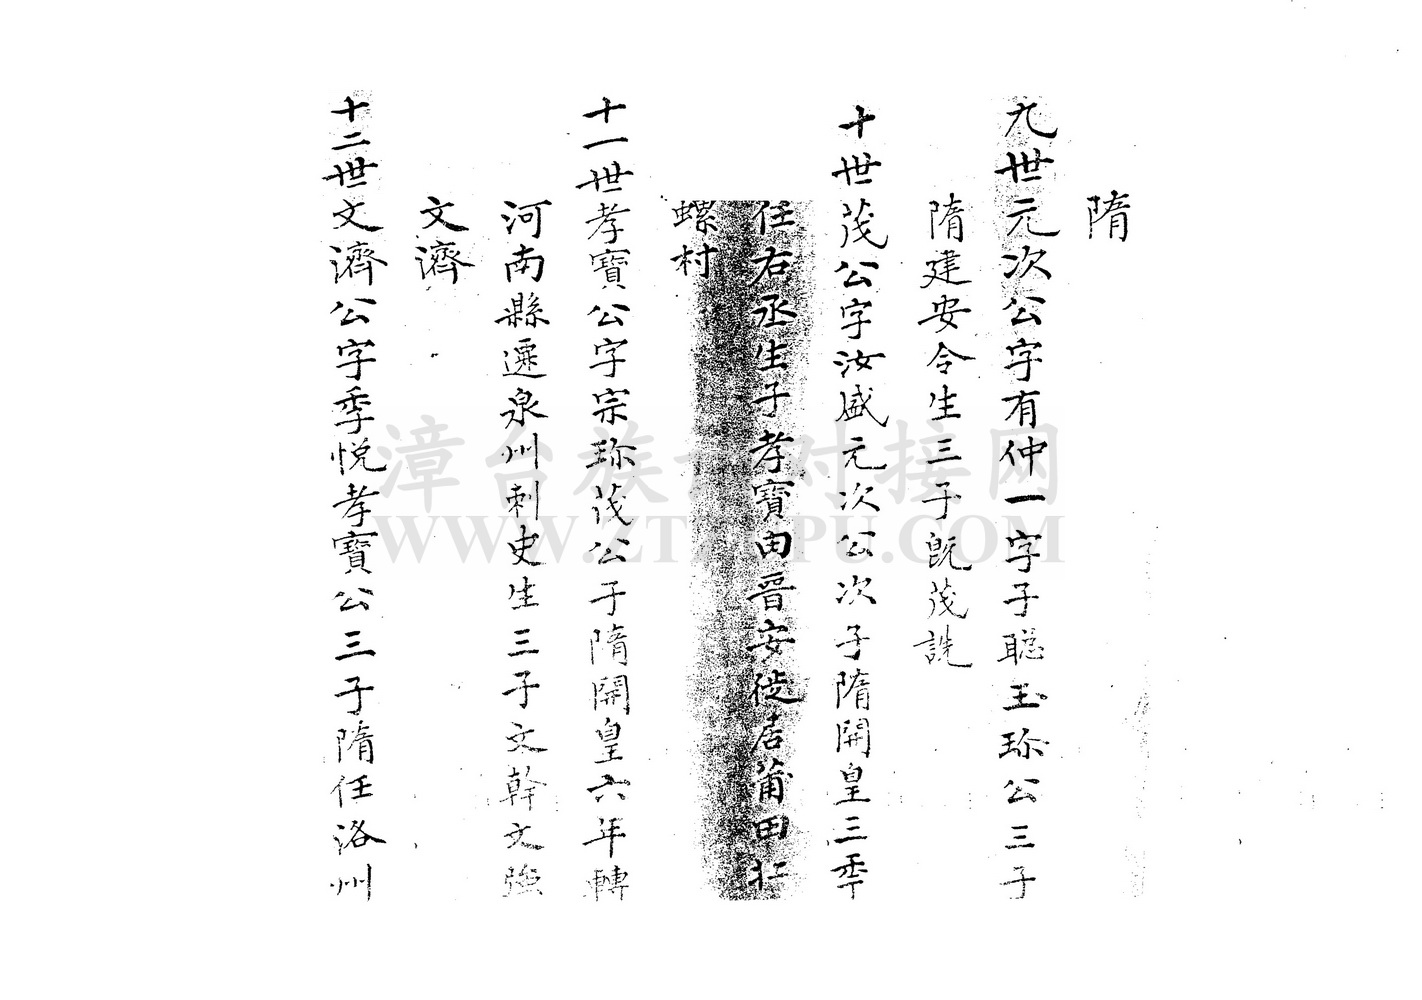 隋
九世元次公字有仲一字子聪玉珎公三子
隋建安令生三子旣茂詵
十世茂公字汝盛元次公次子隋開皇三年
任右丞生子孝寶由晋安徙居莆田
螺村
十一世孝寶公字宗珎茂公子隋開皇六年轉
河南縣遷泉州刺史生三子文幹文強
文濟
十二世文濟公字季悅孝寶公三子隋任洛州
漳台族 对接网
WWW.ZTZUPU.COM